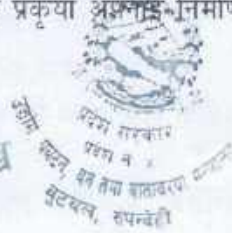 प्रकृया अपनाई निर्माण
प्रदेश सरकार
प्रदेश नं ५
उद्योग पर्यटन, वन तथा वातावरण मन्त्रालय
बुटवल, रुपन्देही